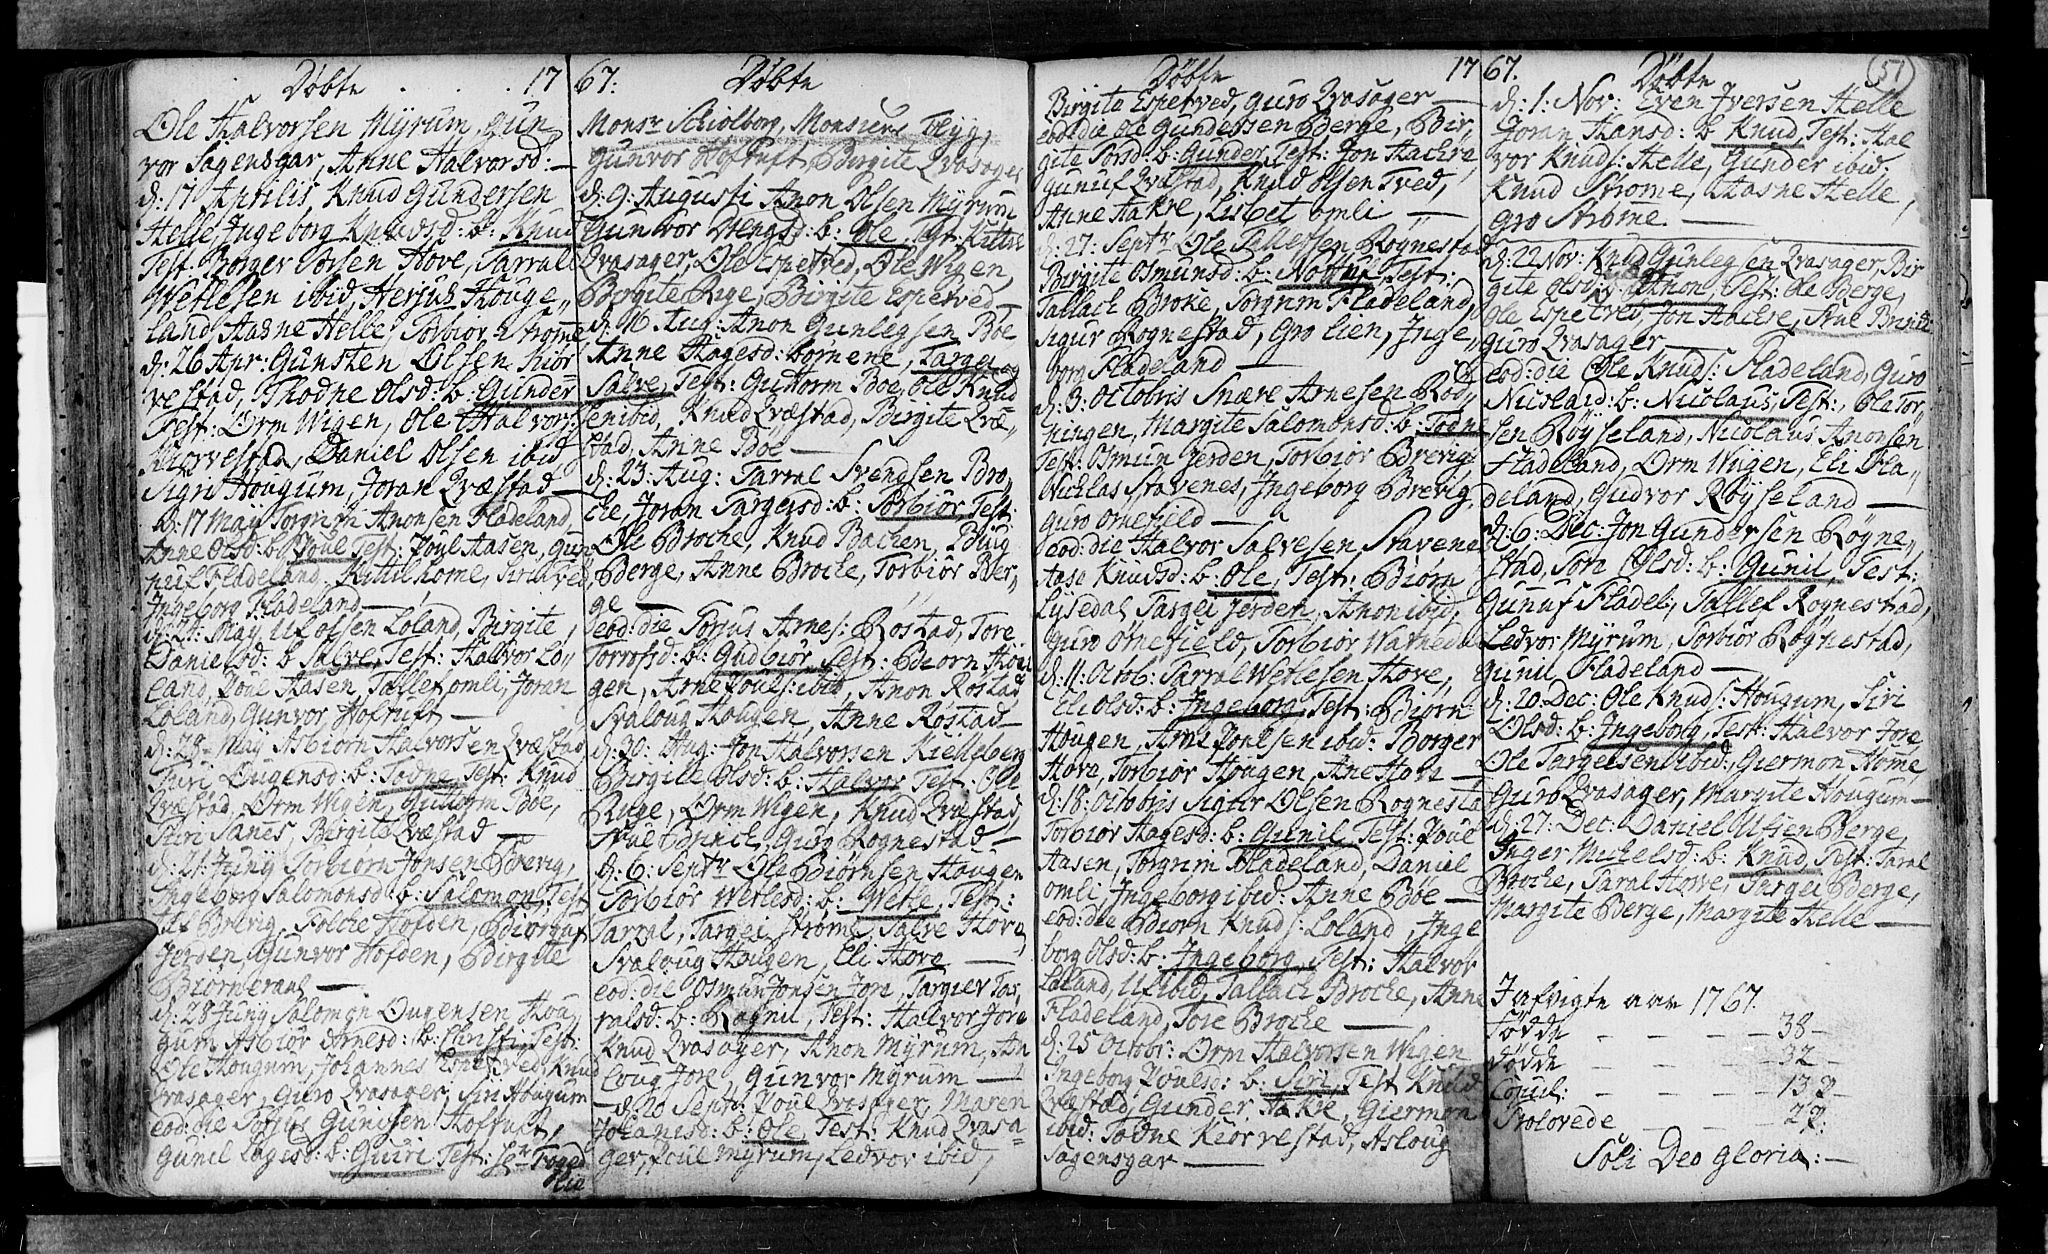 Döbte . . . 17
Ole Halvorsen Myrum, Gun
vor Sagensgar, Anne Halvorsd: —
d: 17 Aprilis, Knud Gundersen
Helle, Ingeborg Knudsd: b: Knud
Test: Börger Hove, Tarral
Wetlesen ibid, Houge„
land, Aasne Helle, Torbiör Strøme
d: 26 Apr: Gunsten Olsen Kiör
vestad, Thodne Olsd: b: Gunder
Test: Orm Wigen, Ole Halvors:
Kiorvestad, Daniel Olsen ibid
Sigri Hougum, Joran Qvæstad —
d: 17 Maÿ Torgrim Anonsen Fladeland,
Anne Olsd: b: Poul Test: Poul Aasen, Gun
nuf Fladeland, Kittil home,
Ingeborg Fladeland —
Maÿ Ulf Olsen Loland, Birgite
Danielsd: b: Salve, Test: Halvor Lo„
land, Poul Aasen, Tallef omli, Joran
Loland, Gunvor Hofruft —
d: 28 Maÿ Asbiörn Halvorsen Qvæstad
Siri Ougensd: b: Todne Test: Knud
Qvæstad, Orm Wigen, Guttorm Böe,
Siri Birgite Qvæstad —
d: 21 Junÿ Torbiörn Jonsen Brevig,
Ingeborg Salomonsd: b: Salomon, Test
Brevig, Hofden, Biörguf
Jerden, Gunvor Hofden, Birgite
Biörneraas —
d: 28 Junÿ Salomon Ougensen Hou„
gum Asbiör b: Christi, Test:
Ole Hougum, Johannes Espetved, Knud
Qvasager, Guro Qvasager, Siri Hougum
eod: die Torjus Gunisen
Gunil b: Guiri Test: Sr
67: Döbte
Monsr Schiolborg, Monsieur
Gunvor Birgite Qvasager
d: 9: Augusti Anon Olsen Myrum
Gunvor b: Ole, Test: Kittil
Qvasager, Ole Espetved, Ole Wigen,
Birgite Rige, Birgite Espetved —
d: 16 Aug: Anon Gunlegsen Böe
Anne Aagesd: børnene, Targei og
Salve, Test: Guttorm Böe, Ole Knud
sen ibid, Knud Qvæstad, Birgite Qvæ„
stad, Anne Böe —
d: 23 Aug: Tarral Svendsen Bro„
che, Joran Targeisd: b: Torbiör Test:
Ole Broche, Knud Bachen,
Berge, Anne Broche, Torbiör Ber„
ge —
eod: die Torjus Arnes: Rostad, Tore
Torrofsd: b: Gudbiör Test: Biörn Hou
gen, Arne Pouls: ibid, Anon Röstad
Svaloug Hougen, Anne Röstad —
d: 30: Aug: Jon Halvorsen Kielleberg
Birgite Olsd: b: Halvor Test: Ole
Ruge, Orm Wigen, Knud Qvæstad,
Guro Rognestad —
d: 6: Septr Ole Biörnsen Hougen
Torbiör Wetlesd: b: Wetle, Test:
Tarral, Targei Strøme, Salve Hove,
Svaloug Hougen, Eli Hove —
eod: die Osmun Jonsen Jore, Targier Tar„
ralsd: b: Ragnil, Test: Halvor Jore
Knud Qvasager, Anon Myrum, As
loug Jore, Gunvor Myrum —
d: 20 Septr: Poul Qvasager, Maren
Johansd: b: Ole, Test: Knud Qvasa„
ger, Poul Myrum, Ledvor ibid,
Döbte 17
Birgite Espetved, Guro Qvasager —
eod: die Ole Gundersen Berge, Bir„
gite Tord: b: Gunder, Test: Jon Aachre
Gunuf Qvæstad, Knud Olsen Tved,
Anne Aakre, Lisbet omli —
d: 27: Septr Ole Tallefsen Rognestad
Birgite Osmunsd: b: Test:
Tallach Broke, Torgrim Fladeland,
Sigur Rognestad, Gro Lien, Inge„
borg Fladeland —
d: 3: Octobris Snære Arnesen Rod„
ningen, Margite Salomonsd: b: Todne
Test: Osmun Jerden, Torbiör Brevig,
Nicklas Stavenes, Ingeborg Brevig,
Guro Ornefield —
eod: die Halvor Salvesen Stavenes
Aase Knudsd: b: Ole, Test: Biörn
Lÿsedal, Targei Jerden, Anon ibid,
Guro Ornefield, Torbiör Watnedal
d: 11 Octob: Tarral Wetlesen Hove,
Eli Olsd: b: Ingeborg, Test: Biörn
Hougen, Arne Poulsen ibid: Borger
Hove, Torbiör Hougen, Ane Hove —
d: 18: Octobris Sigur Olsen Rognestad
Torbiör Aagesd: b: Gunil Test: Poul
Aasen, Torgrim Fladeland, Daniel
omli, Ingeborg ibid: Anne Böe —
eod: die Biorn Knuds: Loland, Inge
borg Olsd: b: Ingeborg, Test: Halvor
Loland, Ulf ibid, Tallach Broche, Anne
Fladeland, Tore Broche —
d: 25 Octobr: Orm Halvorsen Wigen
Ingeborg Poulsd: b: Siri, Test: Knud
Qvæstad, Gunder Aakre, Giermon
ibid: Todne Kiörvestad, Asloug
Sagensgar —
67. Döbte
51
d: 1: Nov: Even Iversen Helle
Joran Hansd: b: Knud, Test: Hal
vor Knuds: Helle, Gunder ibid:
Knud Strome, Aasne Helle,
Gro Strøme —
d: 22 Nov: Knud Gunlegsen Qvasager, Bir
gite Olsd: b: Anon Test: Ole Berge,
Ole Espetved, Jon Aachre,
Guro Qvasager —
eod: die Ole Knuds: Fladeland, Guro
Nicolaid: b: Nicolaus, Test: Ole Tor„
sen Röÿseland, Nicolaus Anonsen
Fladeland, Orm Wiigen, Eli Fla„
deland, Gudvor Röÿseland —
d: 6: Dec: Jon Gundersen Rögne„
stad, Tore Olsd: b: Gunil Test:
Gunuf Fladel:, Tallef Rognestad,
Ledvor Myrum, Torbiör Rögnestad,
Gunil Fladeland —
d: 20: Dec: Ole Knuds: Hougum, Siri
Olsd: b: Ingeborg, Test: Halvor Jore,
Ole Targeisen ibid:, Giermon Home,
Guro Qvasager, Margite Hougum —
d: 27: Dec: Daniel Ulfsen Berge,
Inger Michelsd: b: Knud, Test: Taral
Broche, Taral Hove, Targei Berge,
Margite Berge, Margite Helle —
I afvigte aar 1767.
födde — — — 38 —
dödde — — — 32 —
Copul: — — — 13 p
Trolovede — — — 22.
Soli Deo Gloria: —